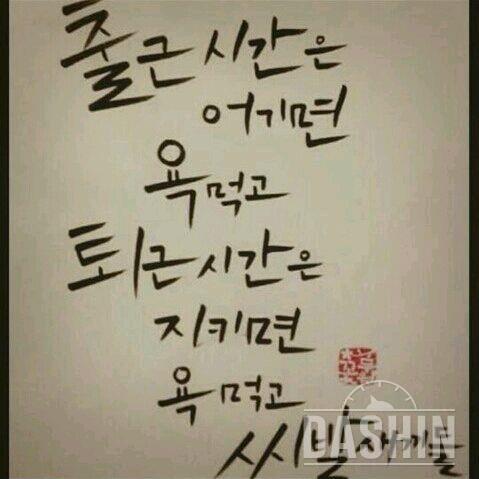 출근시간은
어기면
욕먹고
퇴근시간은
지키면
욕먹고
씨발새끼들
DASHIN